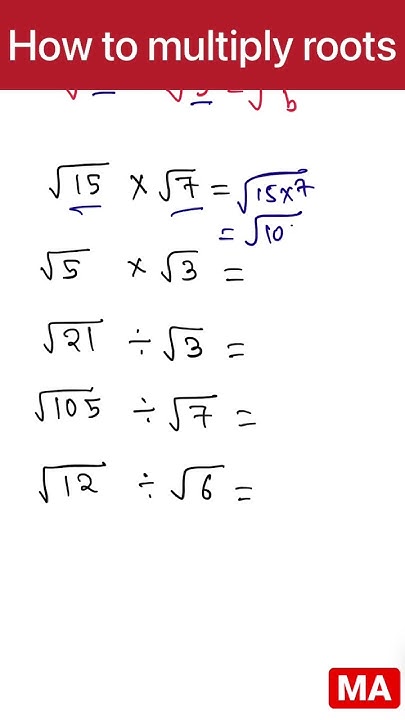 How to multiply roots
√15 × √7 = √15×7
= √10
√5 × √3 =
√21 ÷ √3 =
√105 ÷ √7 =
√12 ÷ √6 =
MA